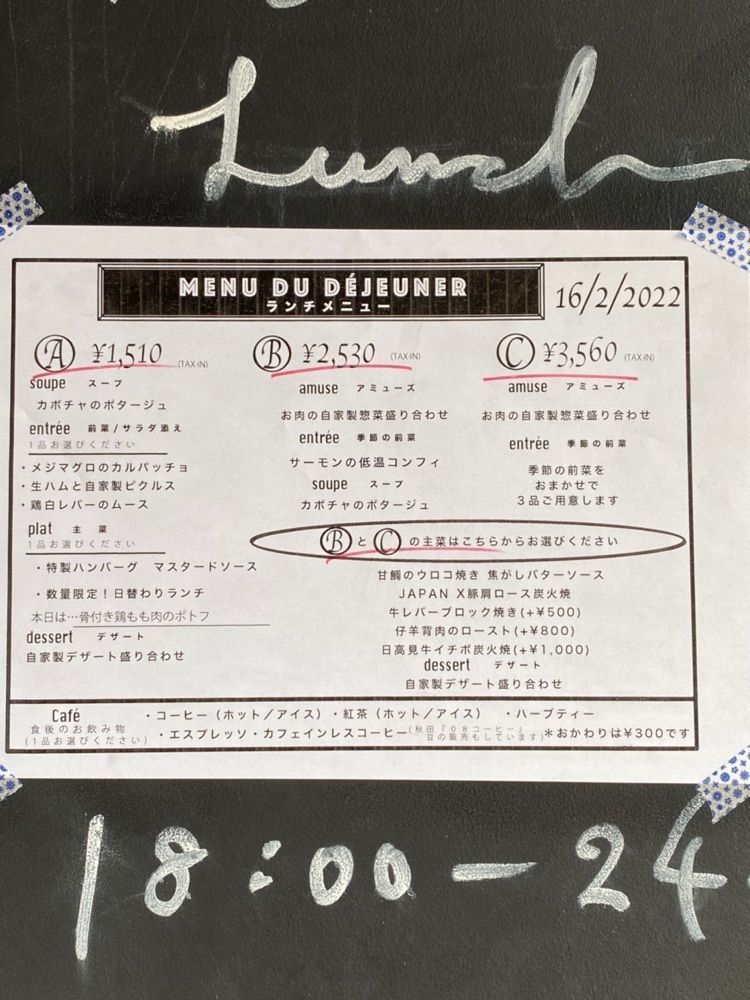 Lunch
MENU DU DÉJEUNER
ランチメニュー
16/2/2022
Ⓐ ¥1,510 (TAX-IN)
soupe スープ
カボチャのポタージュ
entrée 前菜/サラダ添え
1品お選びください
・メジマグロのカルパッチョ
・生ハムと自家製ピクルス
・鶏白レバーのムース
plat 主菜
1品お選びください
・特製ハンバーグ マスタードソース
・数量限定！日替わりランチ
本日は…骨付き鶏もも肉のポトフ
dessert デザート
自家製デザート盛り合わせ
Ⓑ ¥2,530 (TAX-IN)
amuse アミューズ
お肉の自家製惣菜盛り合わせ
entrée 季節の前菜
サーモンの低温コンフィ
soupe スープ
カボチャのポタージュ
Ⓒ ¥3,560 (TAX-IN)
amuse アミューズ
お肉の自家製惣菜盛り合わせ
entrée 季節の前菜
季節の前菜を
おまかせで
3品ご用意します
ⒷとⒸの主菜はこちらからお選びください
甘鯛のウロコ焼き 焦がしバターソース
JAPAN X豚肩ロース炭火焼
牛レバーブロック焼き(+¥500)
仔羊背肉のロースト(+¥800)
日高見牛イチボ炭火焼(+¥1,000)
dessert デザート
自家製デザート盛り合わせ
Café
食後のお飲み物
(1品お選びください)
・コーヒー（ホット／アイス）・紅茶（ホット／アイス） ・ハーブティー
・エスプレッソ・カフェインレスコーヒー(秋田『08コーヒー』豆の販売もしています)＊おかわりは¥300です
18:00－24